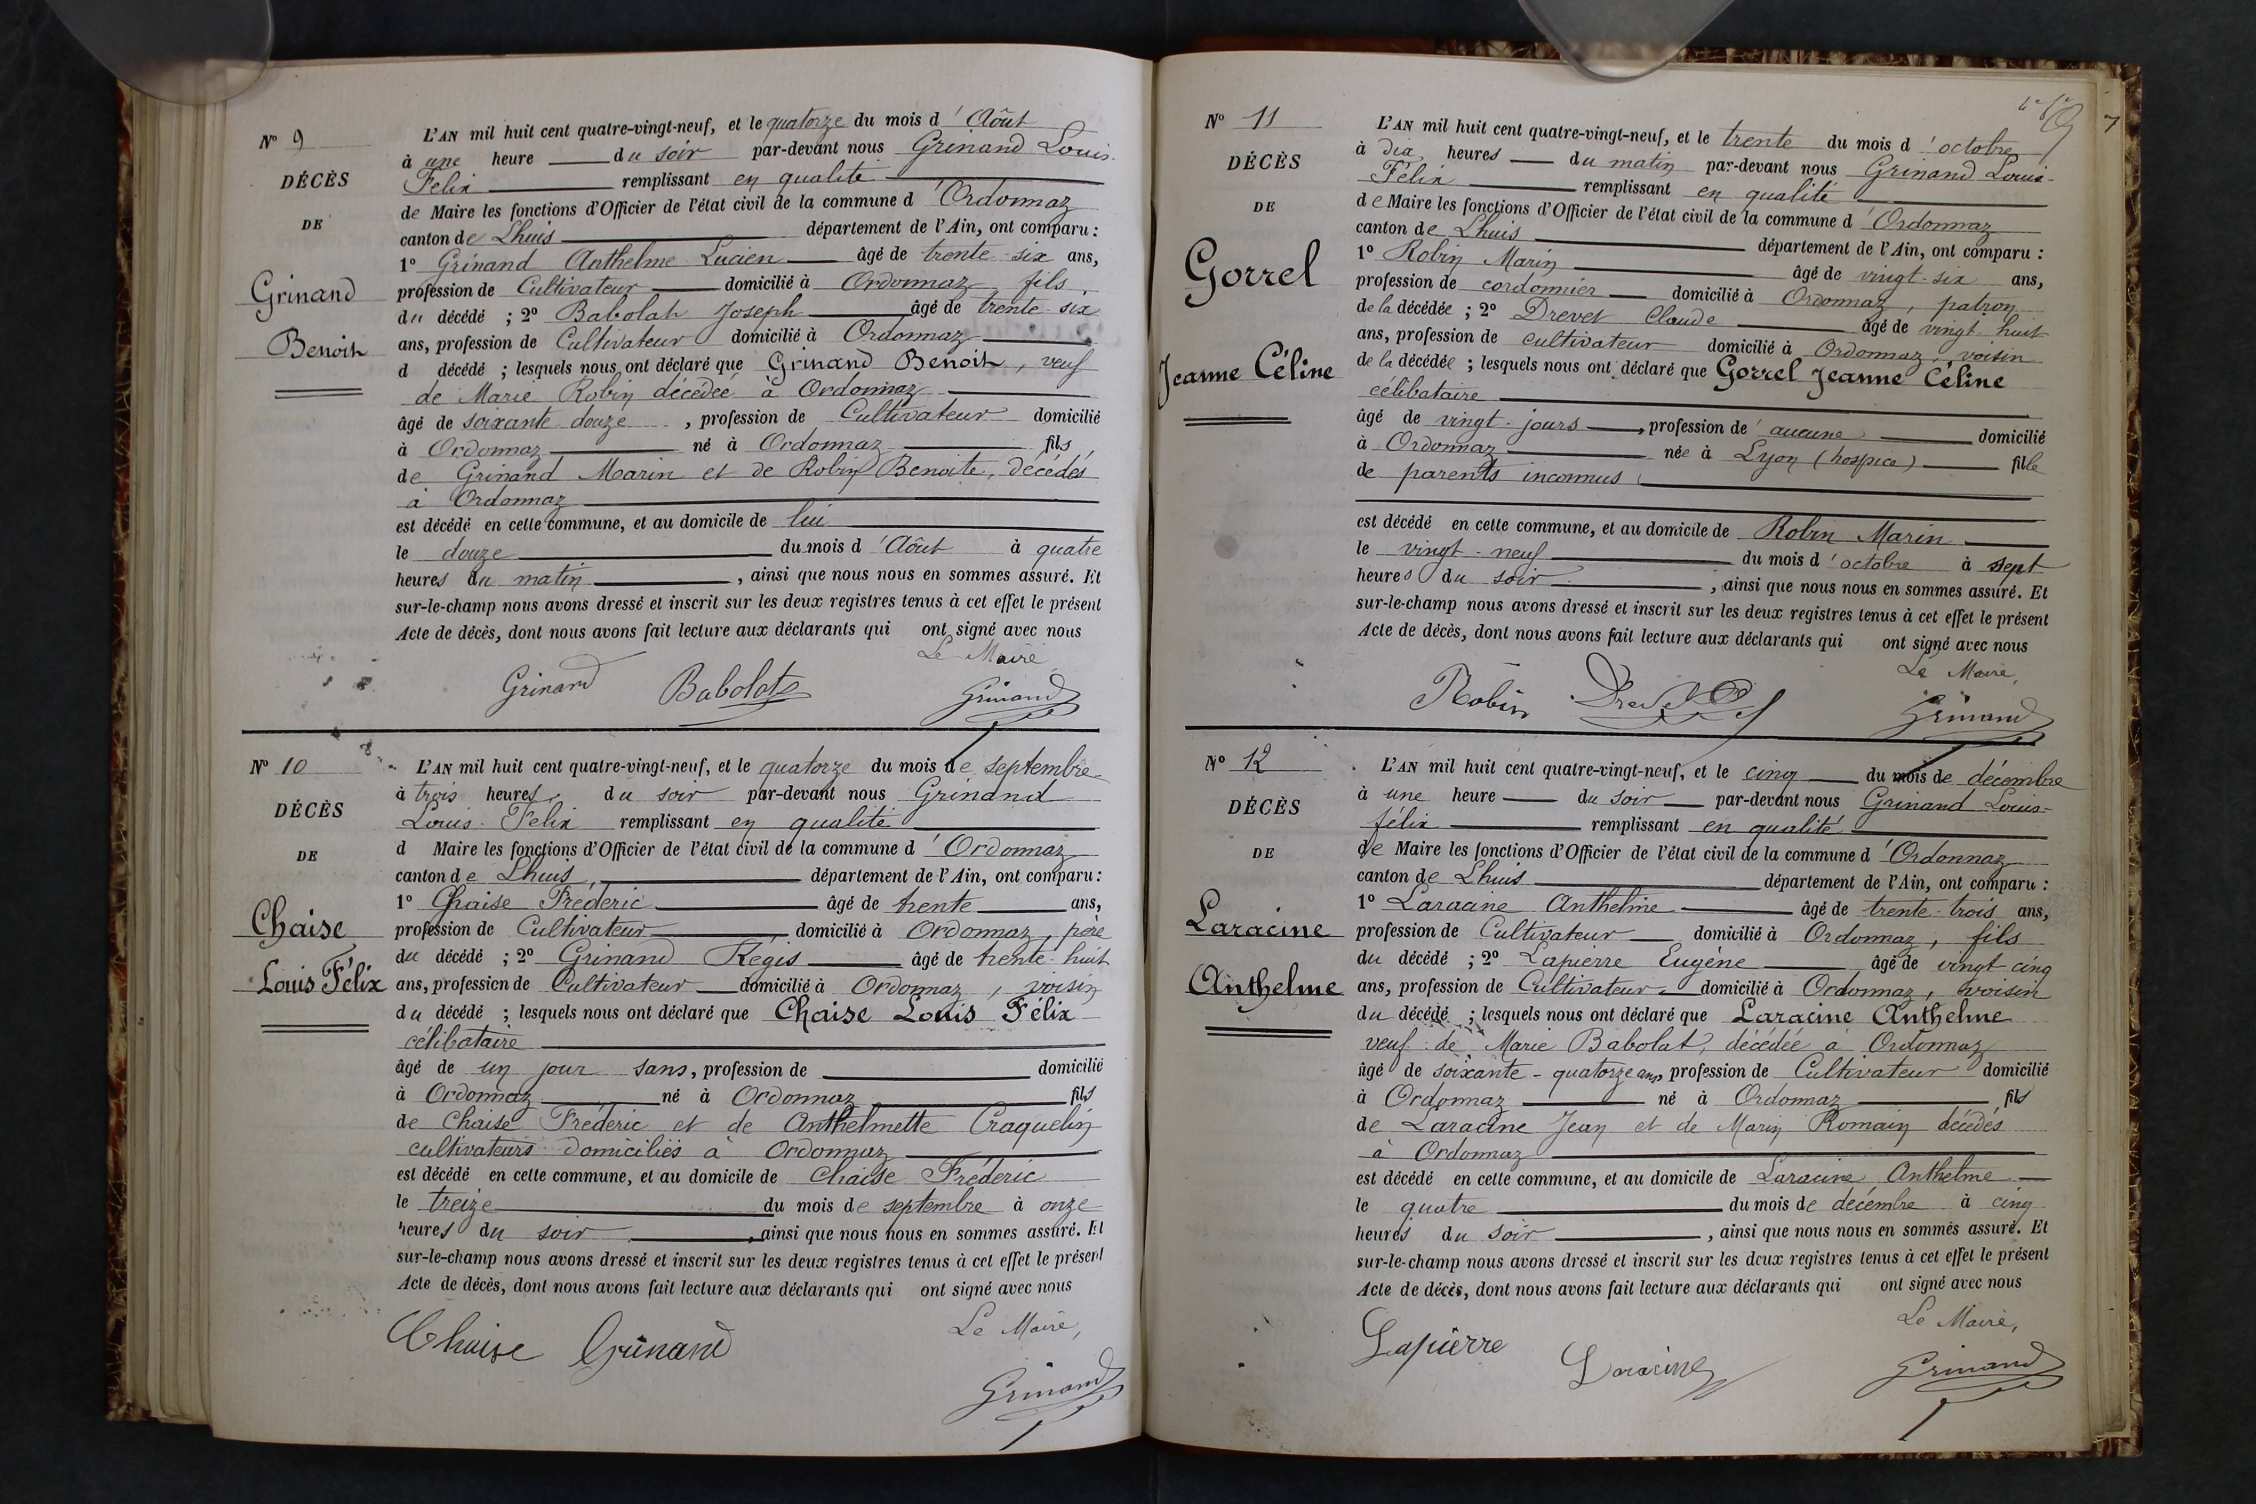 N° 9
DÉCÈS
DE
Grinand
Benoit
L'AN mil huit cent quatre-vingt-neuf, et le quatorze du mois d'Août
à une heure du soir par-devant nous Grinand Louis
Félix remplissant en qualité
de Maire les fonctions d'Officier de l'état civil de la commune d'Ordonnaz
canton de Lhuis département de l'Ain, ont comparu :
1° Grinand Anthelme Lucien âgé de trente-six ans,
profession de Cultivateur domicilié à Ordonnaz, fils
du décédé ; 2° Babolat Joseph âgé de trente-six
ans, profession de Cultivateur domicilié à Ordonnaz
d décédé ; lesquels nous ont déclaré que Grinand Benoit, veuf
de Marie Robin décédée à Ordonnaz
âgé de soixante douze , profession de Cultivateur domicilié
à Ordonnaz né à Ordonnaz fils
de Grinand Marin et de Robin Benoite, décédés
à Ordonnaz
est décédé en cette commune, et au domicile de lui
le douze du mois d'Août à quatre
heures du matin , ainsi que nous nous en sommes assuré. Et
sur-le-champ nous avons dressé et inscrit sur les deux registres tenus à cet effet le présent
Acte de décès, dont nous avons fait lecture aux déclarants qui ont signé avec nous
Le Maire
Grinand Babolat Grinand
N° 10
DÉCÈS
DE
Chaise
Louis Félix
L'AN mil huit cent quatre-vingt-neuf, et le quatorze du mois de septembre
à trois heures du soir par-devant nous Grinand
Louis-Félix remplissant en qualité
d Maire les fonctions d'Officier de l'état civil de la commune d'Ordonnaz
canton de Lhuis, département de l'Ain, ont comparu :
1° Chaise Fréderic âgé de trente ans,
profession de Cultivateur domicilié à Ordonnaz, père
du décédé ; 2° Grinand Régis âgé de trente-huit
ans, profession de Cultivateur domicilié à Ordonnaz, voisin
du décédé ; lesquels nous ont déclaré que Chaise Louis Félix
célibataire
âgé de un jour sans, profession de domicilié
à Ordonnaz né à Ordonnaz fils
de Chaise Fréderic et de Anthelmette Craquelin
cultivateurs domiciliés à Ordonnaz
est décédé en cette commune, et au domicile de Chaise Fréderic
le treize du mois de septembre à onze
heures du soir , ainsi que nous nous en sommes assuré. Et
sur-le-champ nous avons dressé et inscrit sur les deux registres tenus à cet effet le présent
Acte de décès, dont nous avons fait lecture aux déclarants qui ont signé avec nous
Le Maire,
Chaise Grinand
Grinand
7
N° 11
DÉCÈS
DE
Gorrel
Jeanne Céline
L'AN mil huit cent quatre-vingt-neuf, et le trente du mois d'octobre
à dix heures du matin par-devant nous Grinand Louis-
Félix remplissant en qualité
de Maire les fonctions d'Officier de l'état civil de la commune d'Ordonnaz
canton de Lhuis département de l'Ain, ont comparu :
1° Robin Marin âgé de vingt-six ans,
profession de cordonnier domicilié à Ordonnaz, patron
de la décédée ; 2° Drevet Claude âgé de vingt huit
ans, profession de cultivateur domicilié à Ordonnaz, voisin
de la décédée ; lesquels nous ont déclaré que Gorrel Jeanne Céline
célibataire
âgé de vingt-jours , profession de aucune domicilié
à Ordonnaz née à Lyon (hospice) fille
de parents inconnus
est décédé en cette commune, et au domicile de Robin Marin
le vingt-neuf du mois d'octobre à sept
heures du soir ; ainsi que nous nous en sommes assuré. Et
sur-le-champ nous avons dressé et inscrit sur les deux registres tenus à cet effet le présent
Acte de décès, dont nous avons fait lecture aux déclarants qui ont signé avec nous
Le Maire,
Robin Drevet Grinand
N° 12
DÉCÈS
DE
Laracine
Anthelme
L'AN mil huit cent quatre-vingt-neuf, et le cinq du mois de décembre
à une heure du soir par-devant nous Grinand Louis-
félix remplissant en qualité
de Maire les fonctions d'Officier de l'état civil de la commune d'Ordonnaz
canton de Lhuis département de l'Ain, ont comparu :
1° Laracine Anthelme âgé de trente-trois ans,
profession de Cultivateur domicilié à Ordonnaz, fils
du décédé ; 2° Lapierre Eugène âgé de vingt-cinq
ans, profession de Cultivateur domicilié à Ordonnaz, voisin
du décédé ; lesquels nous ont déclaré que Laracine Anthelme
veuf de Marie Babolat, décédée à Ordonnaz
âgé de soixante-quatorze ans, profession de Cultivateur domicilié
à Ordonnaz né à Ordonnaz fils
de Laracine Jean et de Marin Romain décédés
à Ordonnaz
est décédé en cette commune, et au domicile de Laracine Anthelme
le quatre du mois de décembre à cinq
heures du soir , ainsi que nous nous en sommes assuré. Et
sur-le-champ nous avons dressé et inscrit sur les deux registres tenus à cet effet le présent
Acte de décès, dont nous avons fait lecture aux déclarants qui ont signé avec nous
Le Maire,
Lapierre Laracine Grinand